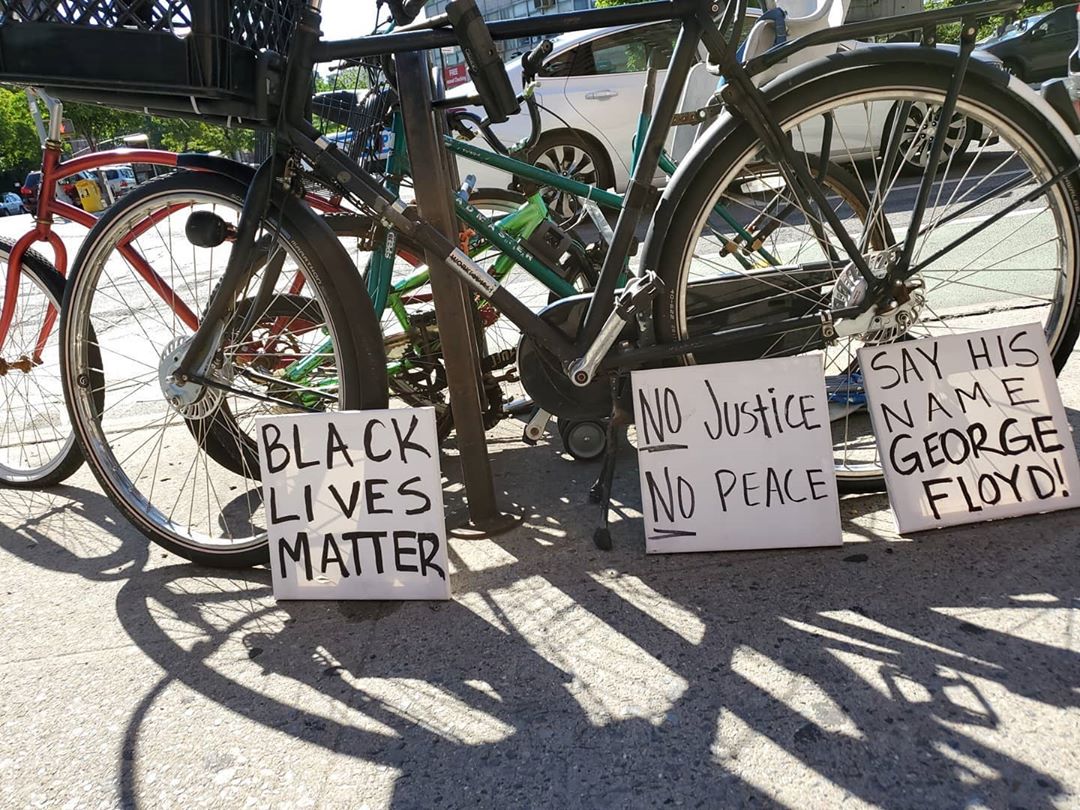 BLACK
LIVES
MATTER
NO JUSTICE
NO PEACE
SAY HIS
NAME
GEORGE
FLOYD!
FREE